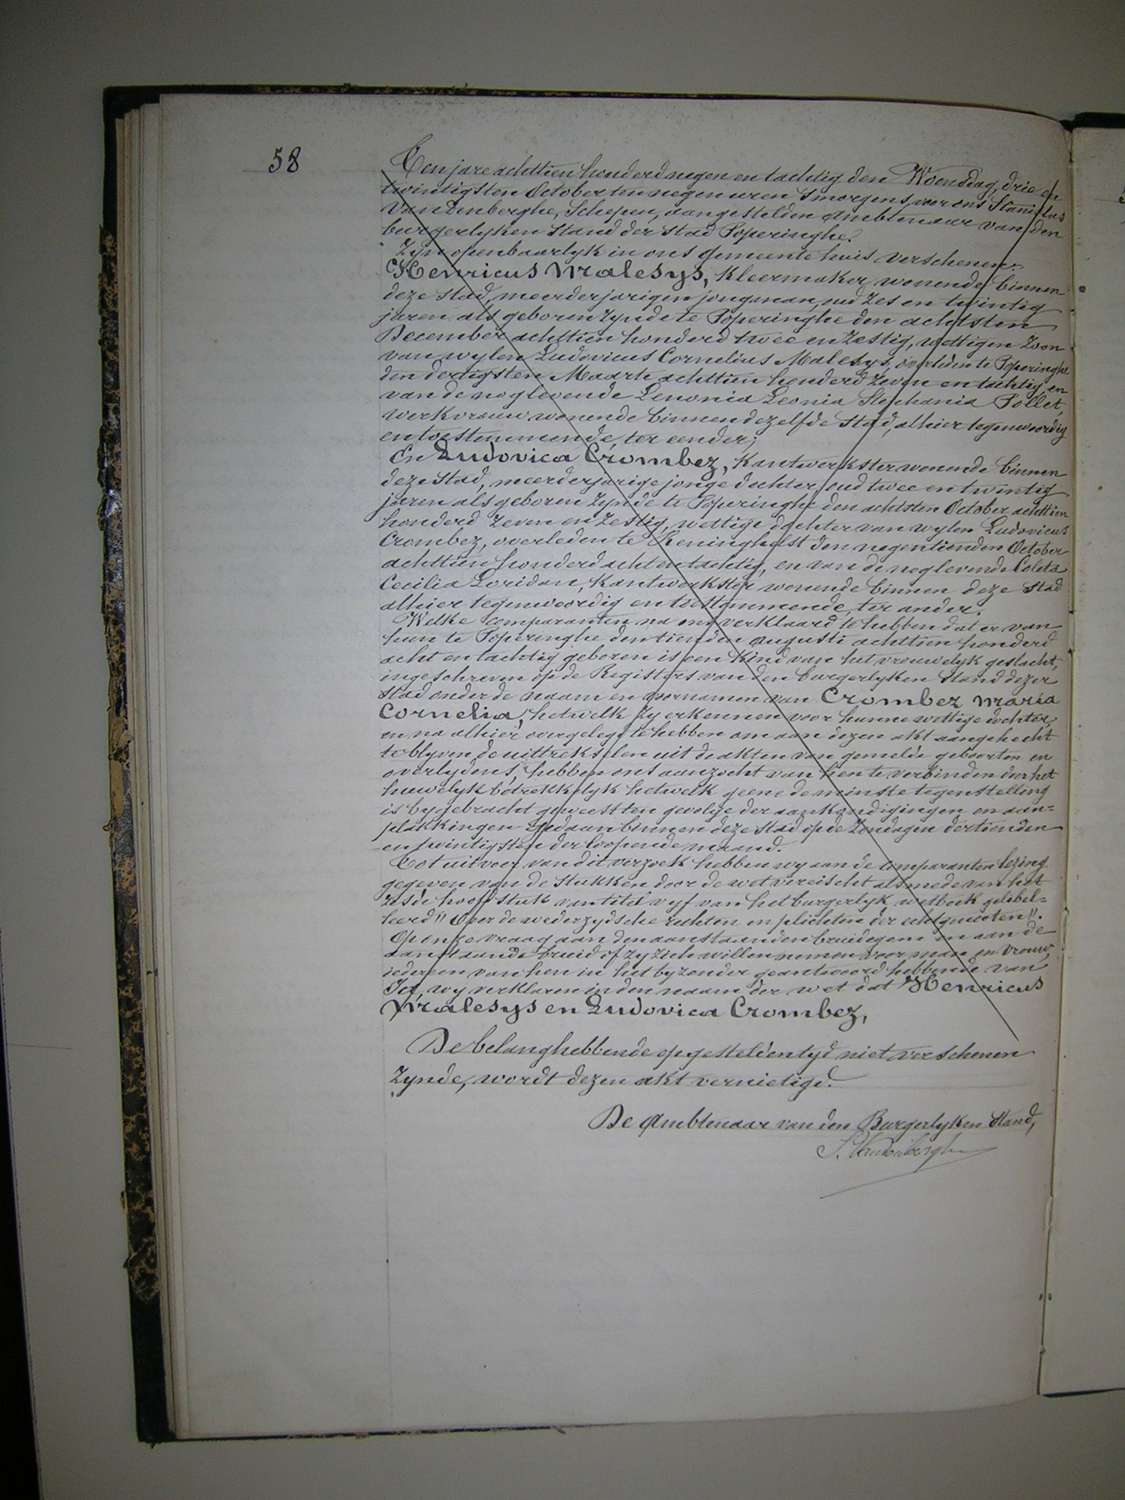 58
Ten jare achttien honderd negen en tachtig den Woensdag, drie en
twintigsten October ten negen uren 's morgens, voor ons Stanislas
Vandenberghe, Schepen, aangestelden Ambtenaar van den
burgerlyken stand der stad Poperinghe.
Zyn openbaarlyk in ons gemeente huis verschenen:
Henricus Malesys, kleermaker, wonende binnen
deze stad, meerderjarigen jongman, oud zes en twintig
jaren als geboren zynde te Poperinghe den achtsten
December achttien honderd twee en zestig, wettigen zoon
van wylen Ludovicus Cornelius Malesys, overleden te Poperinghe
den dertigsten Maarte achttien honderd zeven en tachtig en
van de nog levende Leonia Stephania Pollet,
werkvrouw wonende binnen dezelfde stad, alhier tegenwoordig
en toestemmende, ter eender;
En Ludovica Crombez, kantwerkster wonende binnen
deze stad, meerderjarige jonge dochter, oud twee en twintig
jaren als geboren zynde te Poperinghe den achtsten October achttien
honderd zeven en zestig, wettige dochter van wylen Ludovicus
Crombez, overleden te Reninghelst den negentienden October
achttien honderd acht en tachtig, en van de nog levende Coleta
Cecilia Loridan, kantwerkster wonende binnen deze stad
alhier tegenwoordig en toestemmende, ter ander.
Welke comparanten na ons verklaard te hebben dat er van
hun te Poperinghe den tienden augusti achttien honderd
acht en tachtig geboren is een kind van het vrouwelyk geslacht,
ingeschreven op de Registers van den burgerlyken stand dezer
stad onder de naam en voornamen van Crombez Maria
Cornelia, hetwelk zy erkennen voor hunne wettige dochter,
en na alhier overgelegd te hebben om aan dezen akt aangehecht
te blyven de uittrekselen uit de akten van gemelde geboorten en
overlydens, hebben ons aanzocht van hen te verbinden door het
huwelyk betrekkelyk hetwelk geene de minste tegenstelling
is bygebracht geweest ten gevolge der aankondigingen en aan=
plakkingen gedaan binnen deze stad op de Zondagen dertienden
en twintigsten der loopende maand.
Tot uitvoer van dit verzoek hebben wy aan de comparanten lezing
gegeven van de stukken door de wet vereischt alsmede van het
zesde hoofdstuk van titel vyf van het burgerlyk wetboek getitel=
leerd "Over de wederzydsche rechten en plichten der echtgenoten".
Op onze vraag aan den aanstaanden bruidegom en aan de
aanstaande bruid of zy zich willen nemen voor man en vrouw,
iedereen van hen in het byzonder geantwoord hebbende van
Ja, wy verklaren in den naam der wet dat Henricus
Malesys en Ludovica Crombez,
De belanghebbende op gestelden tyd niet verschenen
zynde, wordt dezen akt vernietigd.
De Ambtenaar van den Burgerlyken Stand,
S. Vandenberghe